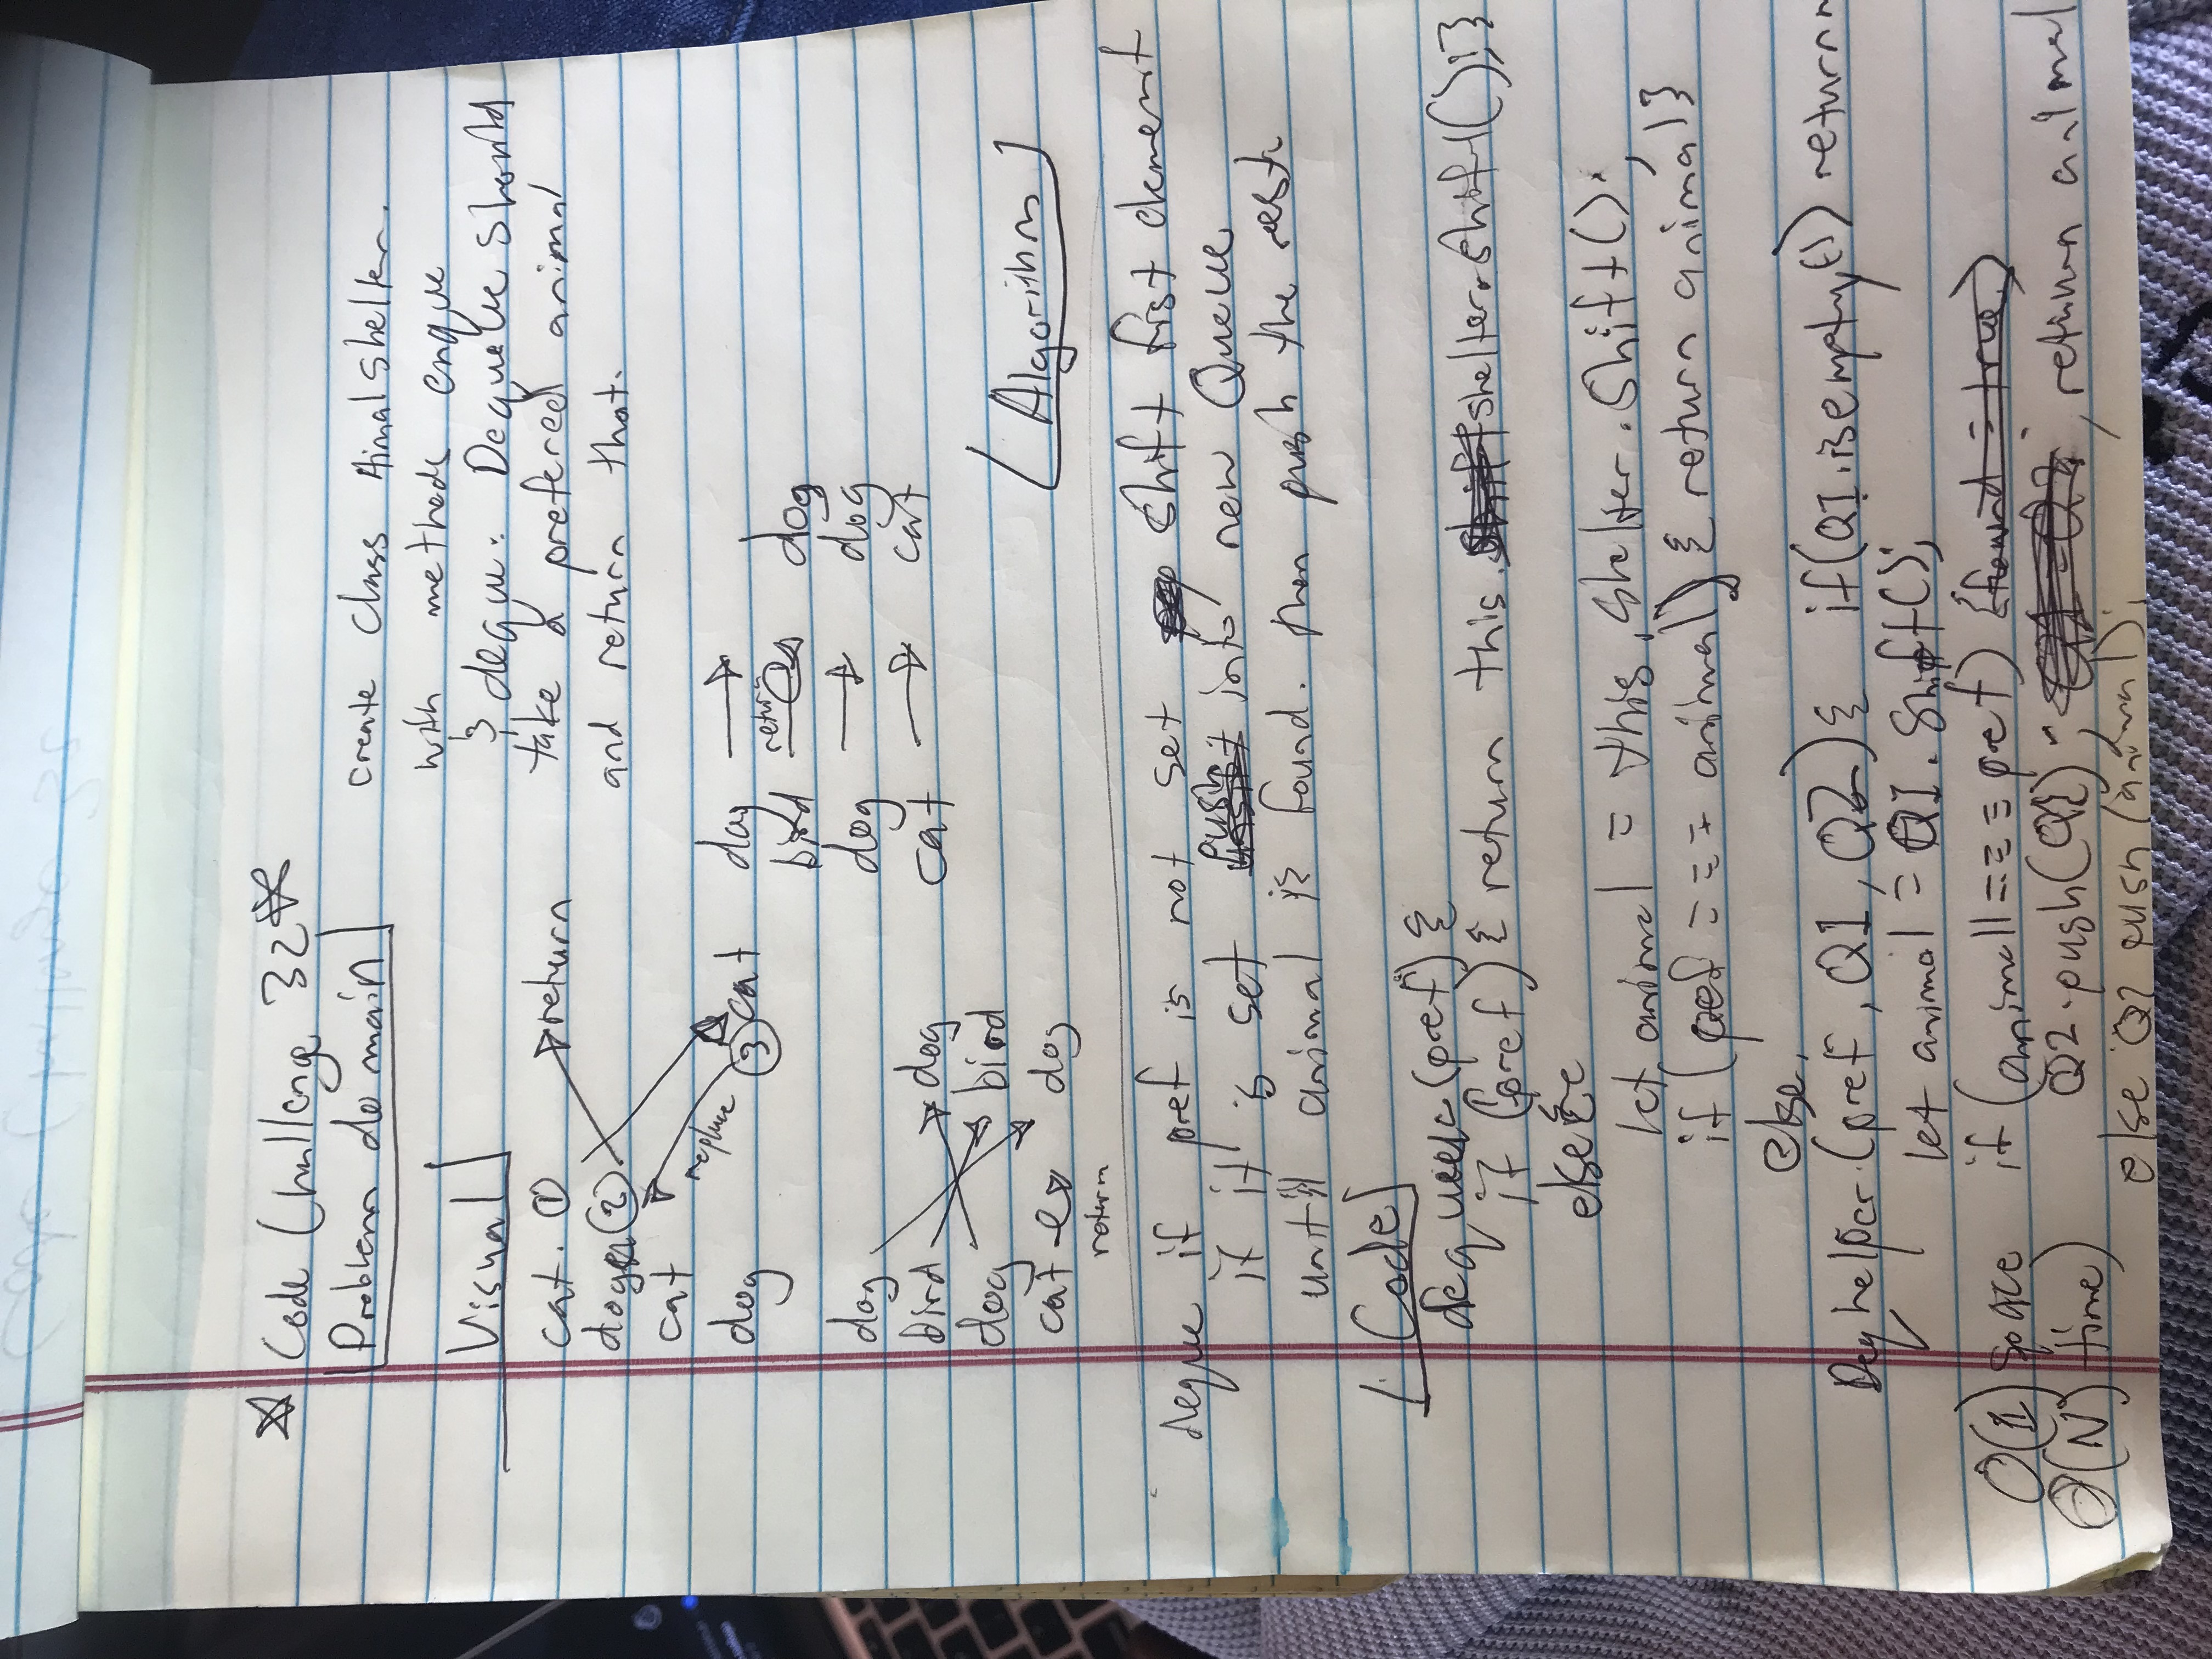 ☆ Code Challenge 32 ☆
Problem domain
create class AimalShelter.
with methods enque
& deque. Dequeue should
take a prefered animal
and return that.
Visual
cat. ① return
dog ②
cat
replace
dog ③ cat
dog
bird dog
dog bird
cat dog
return
dog
bird return dog
dog dog
cat cat
Algorithm
deque if pref is not set shift first element
if it is set push into new Queue
until animal is found. then push the rest
Code
dequeue (pref) {
if (pref) { return this.shelter.shift(); }
else {
let animal = this.shelter.shift();
if (pref === animal) { return animal }
else,
Deq helper (pref, Q1, Q2) { if(Q1.isempty()) return n
let animal = Q1.shift();
O(1) space if (animal === pref) {found = true}
O(N) time) Q2.push(Q1); , return animal
else Q2 push (animal);